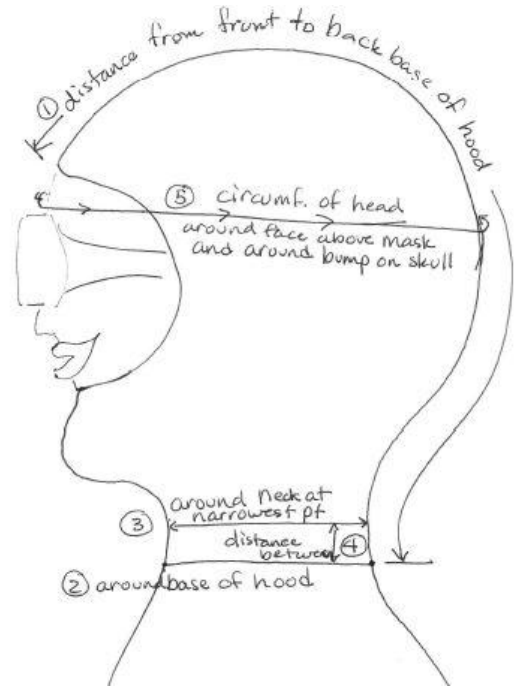 ① distance from front to back base of hood
⑤ circumf. of head
around face above mask
and around bump on skull
③ around neck at
narrowest pt
distance
between ④
② around base of hood